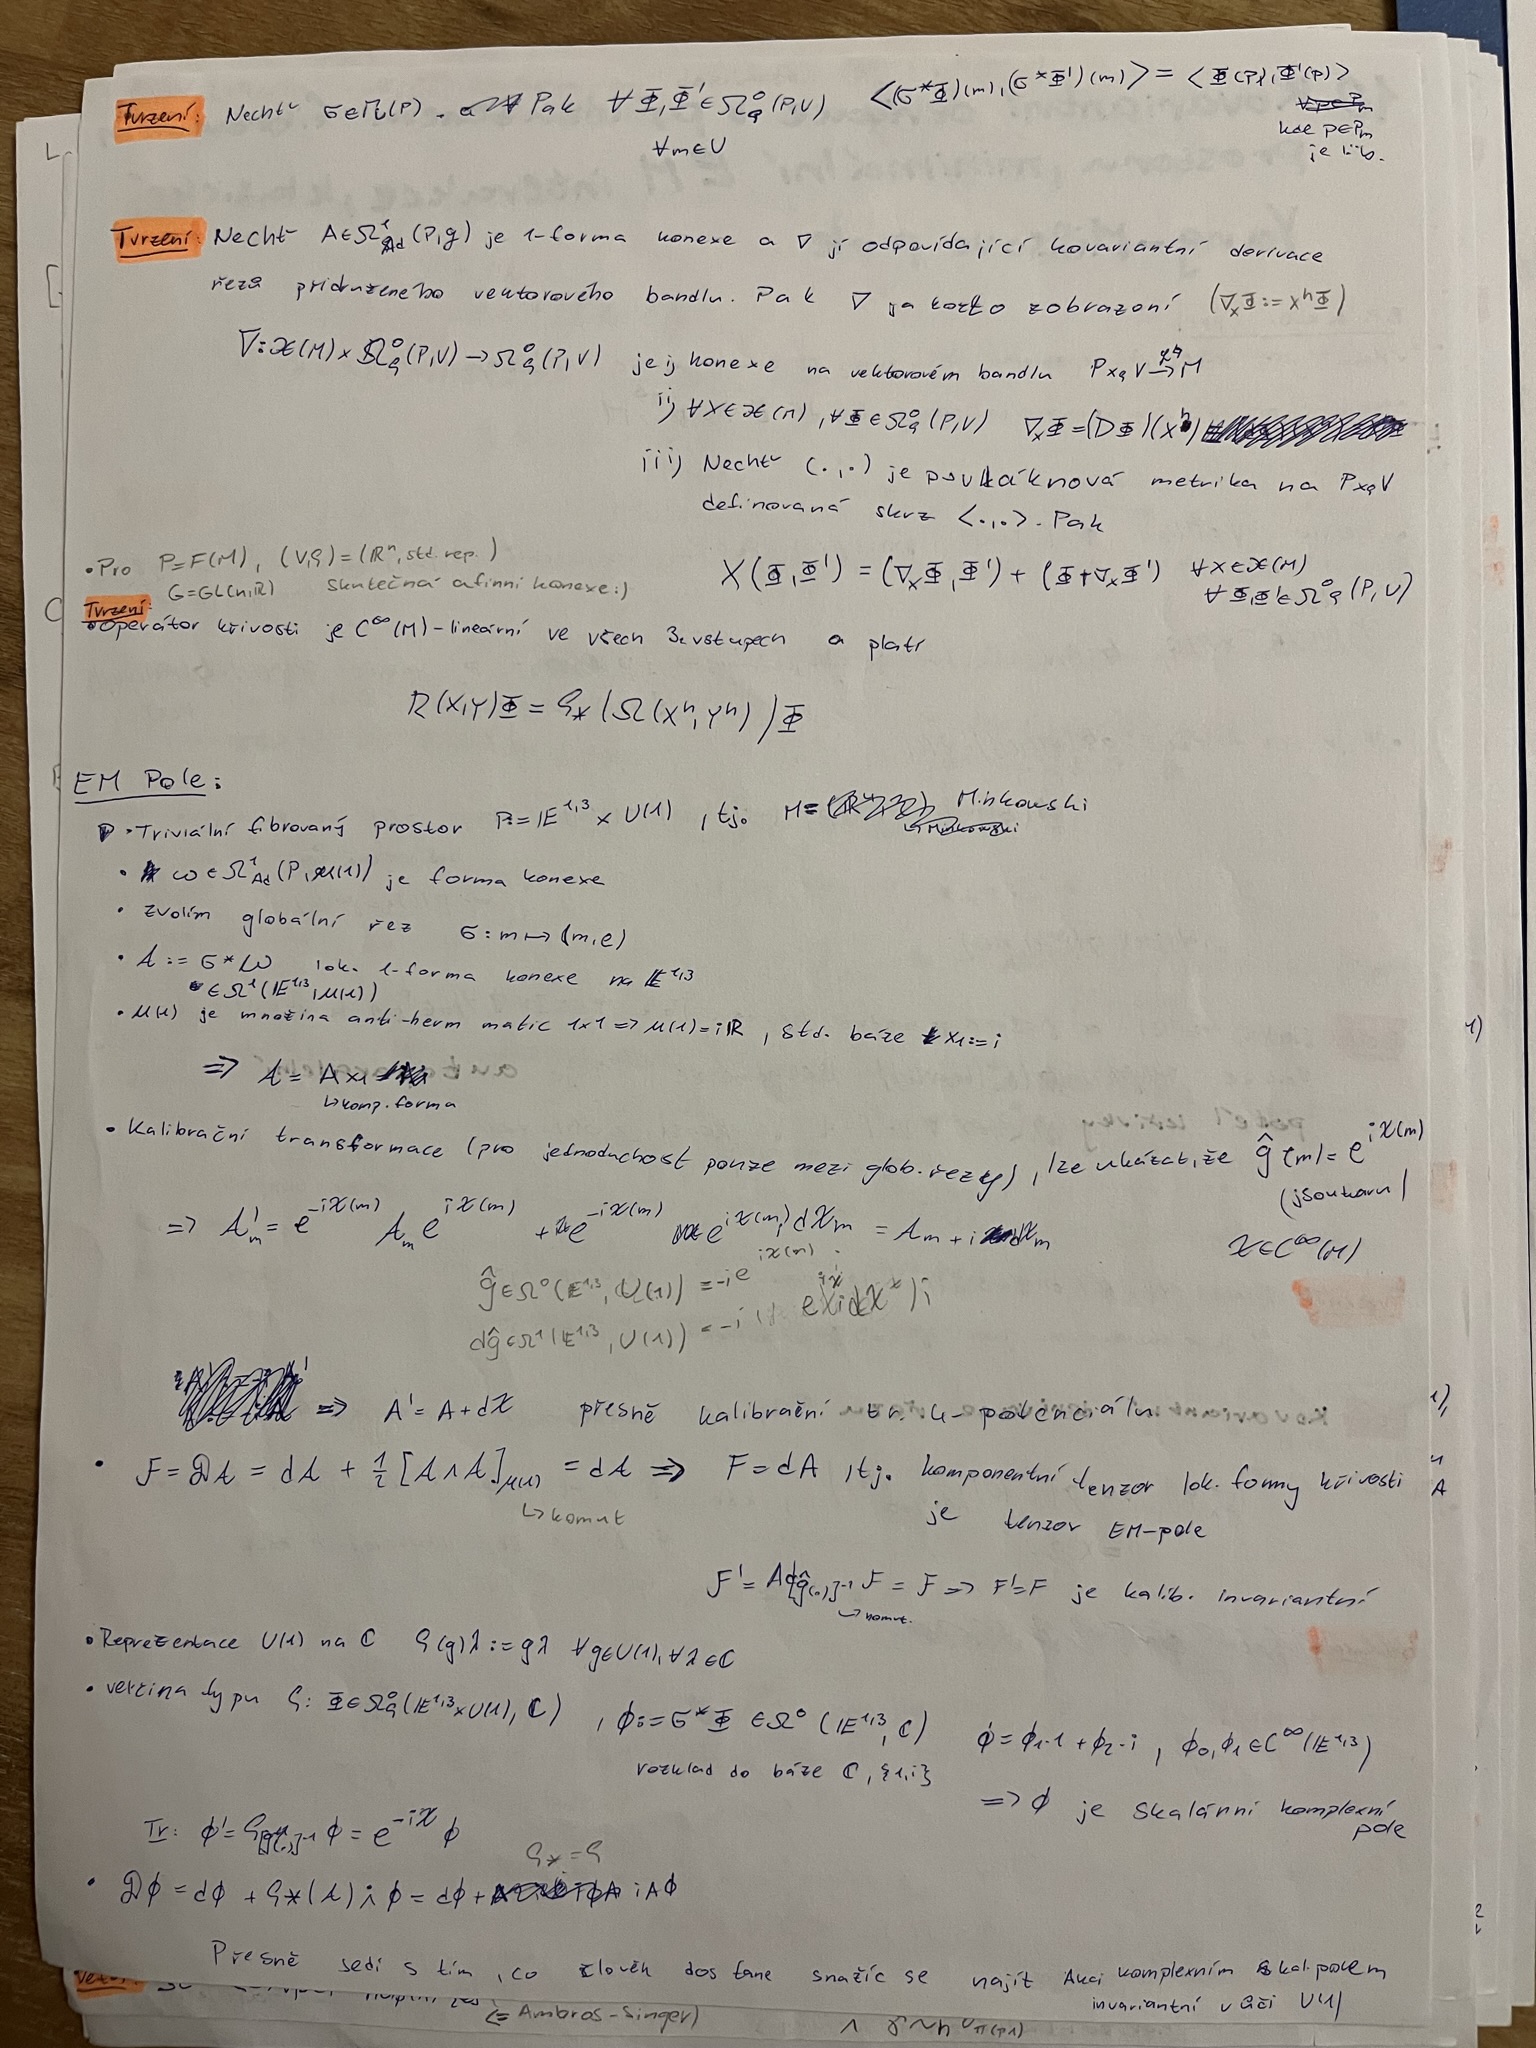 Tvrzení: Nechť σ∈Γ_U(P). Pak ∀Φ,Φ'∈Ω⁰_ρ(P,V) ⟨(σ*Φ)(m),(σ*Φ')(m)⟩ = ⟨Φ(p),Φ'(p)⟩
∀m∈U
kde p∈P_m
je lib.
Tvrzení: Nechť A∈Ω¹_Ad(P,g) je 1-forma konexe a ∇ jí odpovídající kovariantní derivace
řezů přidruženého vektorového bandlu. Pak ∇ jakožto zobrazení (∇_XΦ:=X^hΦ)
∇:𝒳(M)×Ω⁰_ρ(P,V)→Ω⁰_ρ(P,V) je i) konexe na vektorovém bandlu P×_ρV→M
ii) ∀X∈𝒳(M), ∀Φ∈Ω⁰_ρ(P,V) ∇_XΦ=(DΦ)(X^h)
iii) Nechť (.,.) je povláknová metrika na P×_ρV
definovaná skrz <.,.>. Pak
• Pro P=F(M), (V,ρ)=(ℝⁿ,std. rep.)
G=GL(n,ℝ) skutečná afinní konexe:)
X(Φ,Φ') = (∇_XΦ,Φ') + (Φ,∇_XΦ') ∀X∈𝒳(M)
∀Φ,Φ'∈Ω⁰_ρ(P,V)
Tvrzení:
• Operátor křivosti je C^∞(M)-lineární ve všech 3 vstupech a platí
R(X,Y)Φ = ρ_*(Ω(X^h,Y^h))Φ
EM Pole:
• Triviální fibrovaný prostor P:=𝔼^{1,3}×U(1), tj. M= Minkowski
• ω∈Ω¹_Ad(P,𝓊(1)) je forma konexe
• zvolím globální řez σ:m↦(m,e)
• 𝒜:=σ*ω lok. 1-forma konexe na 𝔼^{1,3}
∈Ω¹(𝔼^{1,3},𝓊(1))
• 𝓊(1) je množina anti-herm matic 1x1 => 𝓊(1)=iℝ, std. báze x₁:=i
=> 𝒜 = Ax₁
↳komp. forma
• Kalibrační transformace (pro jednoduchost pouze mezi glob. řezy), lze ukázat, že ĝ(m)=e^{iχ(m)}
(jsou tvaru)
=> 𝒜'_m = e^{-iχ(m)} 𝒜_m e^{iχ(m)} + e^{-iχ(m)} e^{iχ(m)} i dχ_m = 𝒜_m + i dχ_m
χ∈C^∞(M)
ĝ∈Ω⁰(𝔼^{1,3},U(1)) = -i e^{iχ(m)}
dĝ∈Ω¹(𝔼^{1,3},U(1)) = -i
=> A'=A+dχ přesně kalibrační tr. 4-potenciálu
• ℱ=𝒟𝒜 = d𝒜 + ½[𝒜∧𝒜]_{𝓊(1)} = d𝒜 => F=dA, tj. komponentní tenzor lok. formy křivosti
↳komut
je tenzor EM-pole
ℱ'=Ad_{ĝ(.)^{-1}}ℱ = ℱ => F'=F je kalib. invariantní
↳komut.
• Reprezentace U(1) na ℂ ρ(g)λ:=gλ ∀g∈U(1),∀λ∈ℂ
• veličina typu ρ: Φ∈Ω⁰_ρ(𝔼^{1,3}×U(1),ℂ), ϕ:=σ*Φ ∈Ω⁰(𝔼^{1,3},ℂ) ϕ=ϕ₁·1+ϕ₂·i, ϕ₀,ϕ₁∈C^∞(𝔼^{1,3})
rozklad do báze ℂ,{1,i}
=>ϕ je skalární komplexní
pole
Tr: ϕ'=ρ_{ĝ(.)^{-1}}ϕ=e^{-iχ}ϕ
ρ_*=ρ
• 𝒟ϕ=dϕ+ρ_*(𝒜)∧̇ϕ=dϕ+iAϕ
Přesně sedí s tím, co člověk dostane snažíc se najít Akci komplexním skal. polem
invariantní vůči U(1)
(= Ambros-Singer)